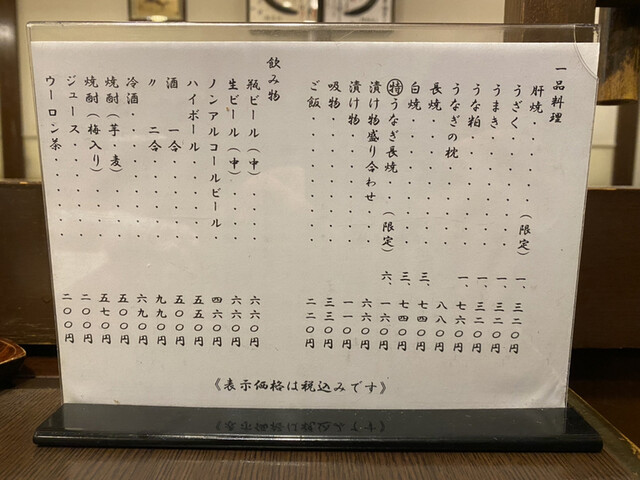 一品料理
肝焼・・・・(限定)一、三二〇円
うざく・・・・・・一、三二〇円
うまき・・・・・・一、三二〇円
うな粕・・・・・・一、七六〇円
うなぎの枕・・・・八八〇円
長焼・・・・・・・三、七四〇円
白焼・・・・・・・三、七四〇円
㊕うなぎ長焼(限定)六、一六〇円
漬け物盛り合わせ・・六六〇円
漬け物・・・・・・一一〇円
吸物・・・・・・・三三〇円
ご飯・・・・・・・二二〇円
飲み物
瓶ビール(中)・・・六六〇円
生ビール(中)・・・六六〇円
ノンアルコールビール・四六〇円
ハイボール・・・・五五〇円
酒 一合・・・・・五〇〇円
〃 二合・・・・・九九〇円
冷酒・・・・・・・六九〇円
焼酎(芋・麦)・・・五〇〇円
焼酎(梅入り)・・・五七〇円
ジュース・・・・・二〇〇円
ウーロン茶・・・・二〇〇円
《表示価格は税込みです》